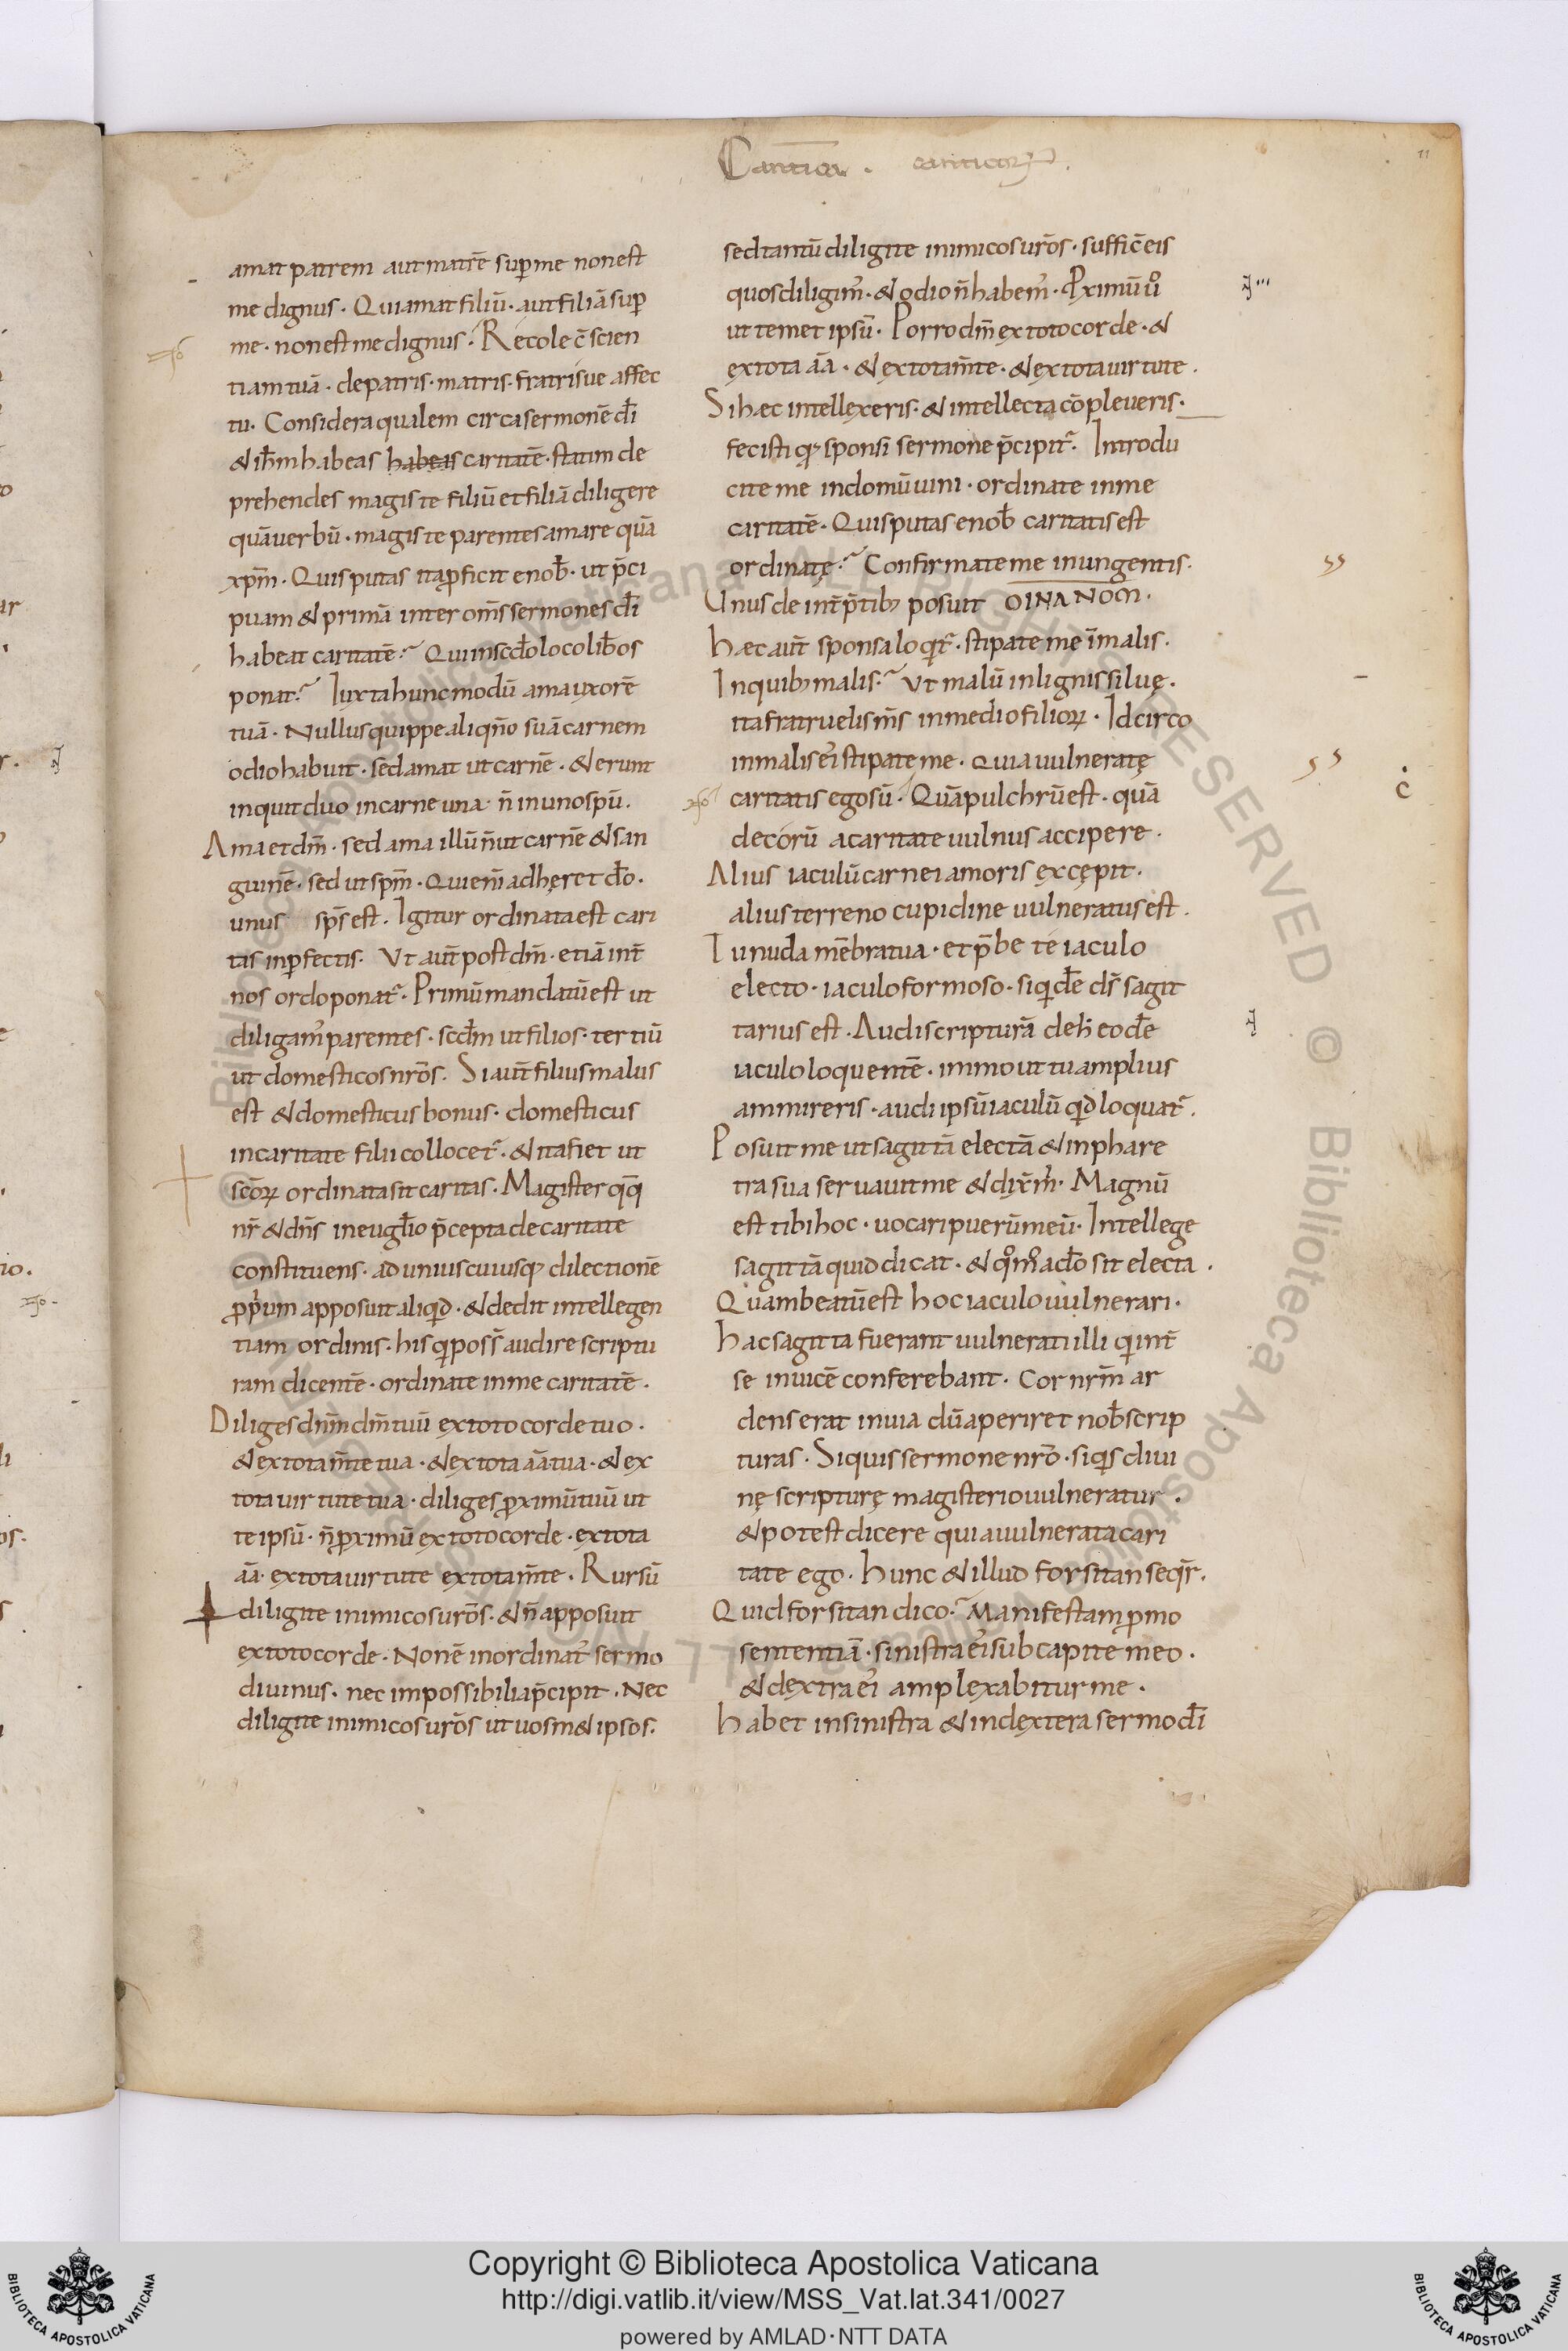 Cantica . canticorꝝ .
amat patrem aut matrē sup me non est
me dignus · Qui amat filiū · aut filiā sup
me · non est me dignus · Recole c̄scien
tiam tuā · de patris · matris · fratrisue affec
tu · Considera qualem circa sermonē dī
& ihm̄ habeas habeas caritatē · statim de
prehendes magis te filiū et filiā diligere
quā uerbū · magis te parentes amare quā
xp̄m · Quis putas ita ꝓficit e nob̄ · ut p̄ci
puam & primā inter om̄s sermones dī
habeat caritatē · Qui in scd̄o loco lib̄os
ponat · Iuxta hunc modū ama uxorē
tuā · Nullus quippe aliqn̄o suā carnem
odio habuit · sed amat ut carnē · & erunt
inquit duo in carne una · n̄ in uno spū ·
Ama et dm̄ · sed ama illū n̄ ut carnē & san
guinē · sed ut spm̄ · Qui enī adheret dō ·
unus sps̄ est · Igitur ordinata est cari
tas in perfectis · Ut aut̄ post dm̄ · etiā int̄
nos ordo ponat᷑ · Primū mandatū est ut
diligam᷒ parentes · scdm̄ ut filios · tertiū
ut domesticos nr̄os · Si aut̄ filius malus
est & domesticus bonus · domesticus
in caritate filii collocet᷑ · & ita fiet ut
scōꝝ ordinata sit caritas · Magister qq̄
nr̄ & dn̄s in euglīo p̄cepta de caritate
constituens · ad uniuscuiusq; dilectionē
ꝓprium apposuit aliqd · & dedit intellegen
tiam ordinis · his qi poss̄ audire scriptu
ram dicentē · ordinate in me caritatē ·
Diliges dnm̄ dm̄ tuū ex toto corde tuo ·
& ex tota m̄te tua · & ex tota āa tua · & ex
tota uirtute tua · diliges ꝓximū tuū ut
te ipsū · n̄ ꝓximū ex toto corde · ex tota
āa · ex tota uirtute ex tota m̄te · Rursū
diligite inimicos ur̄os · & n̄ apposuit
ex toto corde · Non ē inordinat᷒ sermo
diuinus · nec impossibilia p̄cipit · Nec
diligite inimicos ur̄os ut uosm&ipsos ·
sed tantū diligite inimicos ur̄os · suffic̄ eis
quos diligim᷒ · & odio n̄ habem᷒ · Ꝓximū uͦ
ut temet ipsū · Porro dm̄ ex toto corde · &
ex tota āa · & ex tota m̄te · & ex tota uirtute ·
Si hæc intellexeris · & intellecta cōpleueris ·
fecisti q; sponsi sermone p̄cipit᷑ · Introdu
cite me in domū uini · ordinate in me
caritatē · Quis putas e nob̄ caritatis est
ordinatę · Confirmate me in ungentis ·
Unus de int̄p̄tib; posuit OINANOM ·
hæc aut̄ sponsa loqit᷑ · stipate me ī malis ·
In quib; malis · Ut malū in lignis siluę ·
ita fratruelis m̄s in medio filiorꝝ · Idcirco
in malis ei᷒ stipate me · Quia uulneratę
caritatis ego sū · Quā pulchrū est · quā
decorū a caritate uulnus accipere ·
Alius iaculū carnei amoris excępit ·
alius terreno cupidine uulneratus est ·
Tu nuda mēbra tua · et p̄be te iaculo
electo · iaculo formoso · siqidē ds̄ sagit
tarius est · Audi scripturā de h̄ eodē
iaculo loquentē · immo ut tu amplius
ammireris · audi ipsū iaculū qd loquat᷑ ·
Posuit me ut sagittā electā & in phare
tra sua seruauit me & dix̄ m · Magnū
est tibi hoc · uocari puerū meū · Intellege
sagittā quid dicat · & qm̄ a dō sit electa ·
Quam beatū est hoc iaculo uulnerari ·
hac sagitta fuerant uulnerati illi qi int̄
se inuicē conferebant · Cor nr̄m ar
dens erat in uia dū aperiret nob̄ scrip
turas · Si quis sermone nr̄o · siqis diui
nę scripturę magisterio uulneratur ·
& potest dicere quia uulnerata cari
tate ego · hunc & illud forsitan seqr̄ ·
Quid forsitan dico · Manifestam ꝓmo
sententiā · sinistra ei᷒ sub capite meo ·
& dextra ei᷒ amplexabitur me ·
habet in sinistra & in dextera sermo dī
Copyright © Biblioteca Apostolica Vaticana
http://digi.vatlib.it/view/MSS_Vat.lat.341/0027
powered by AMLAD·NTT DATA
BIBLIOTECA APOSTOLICA VATICANA
BIBLIOTECA APOSTOLICA VATICANA